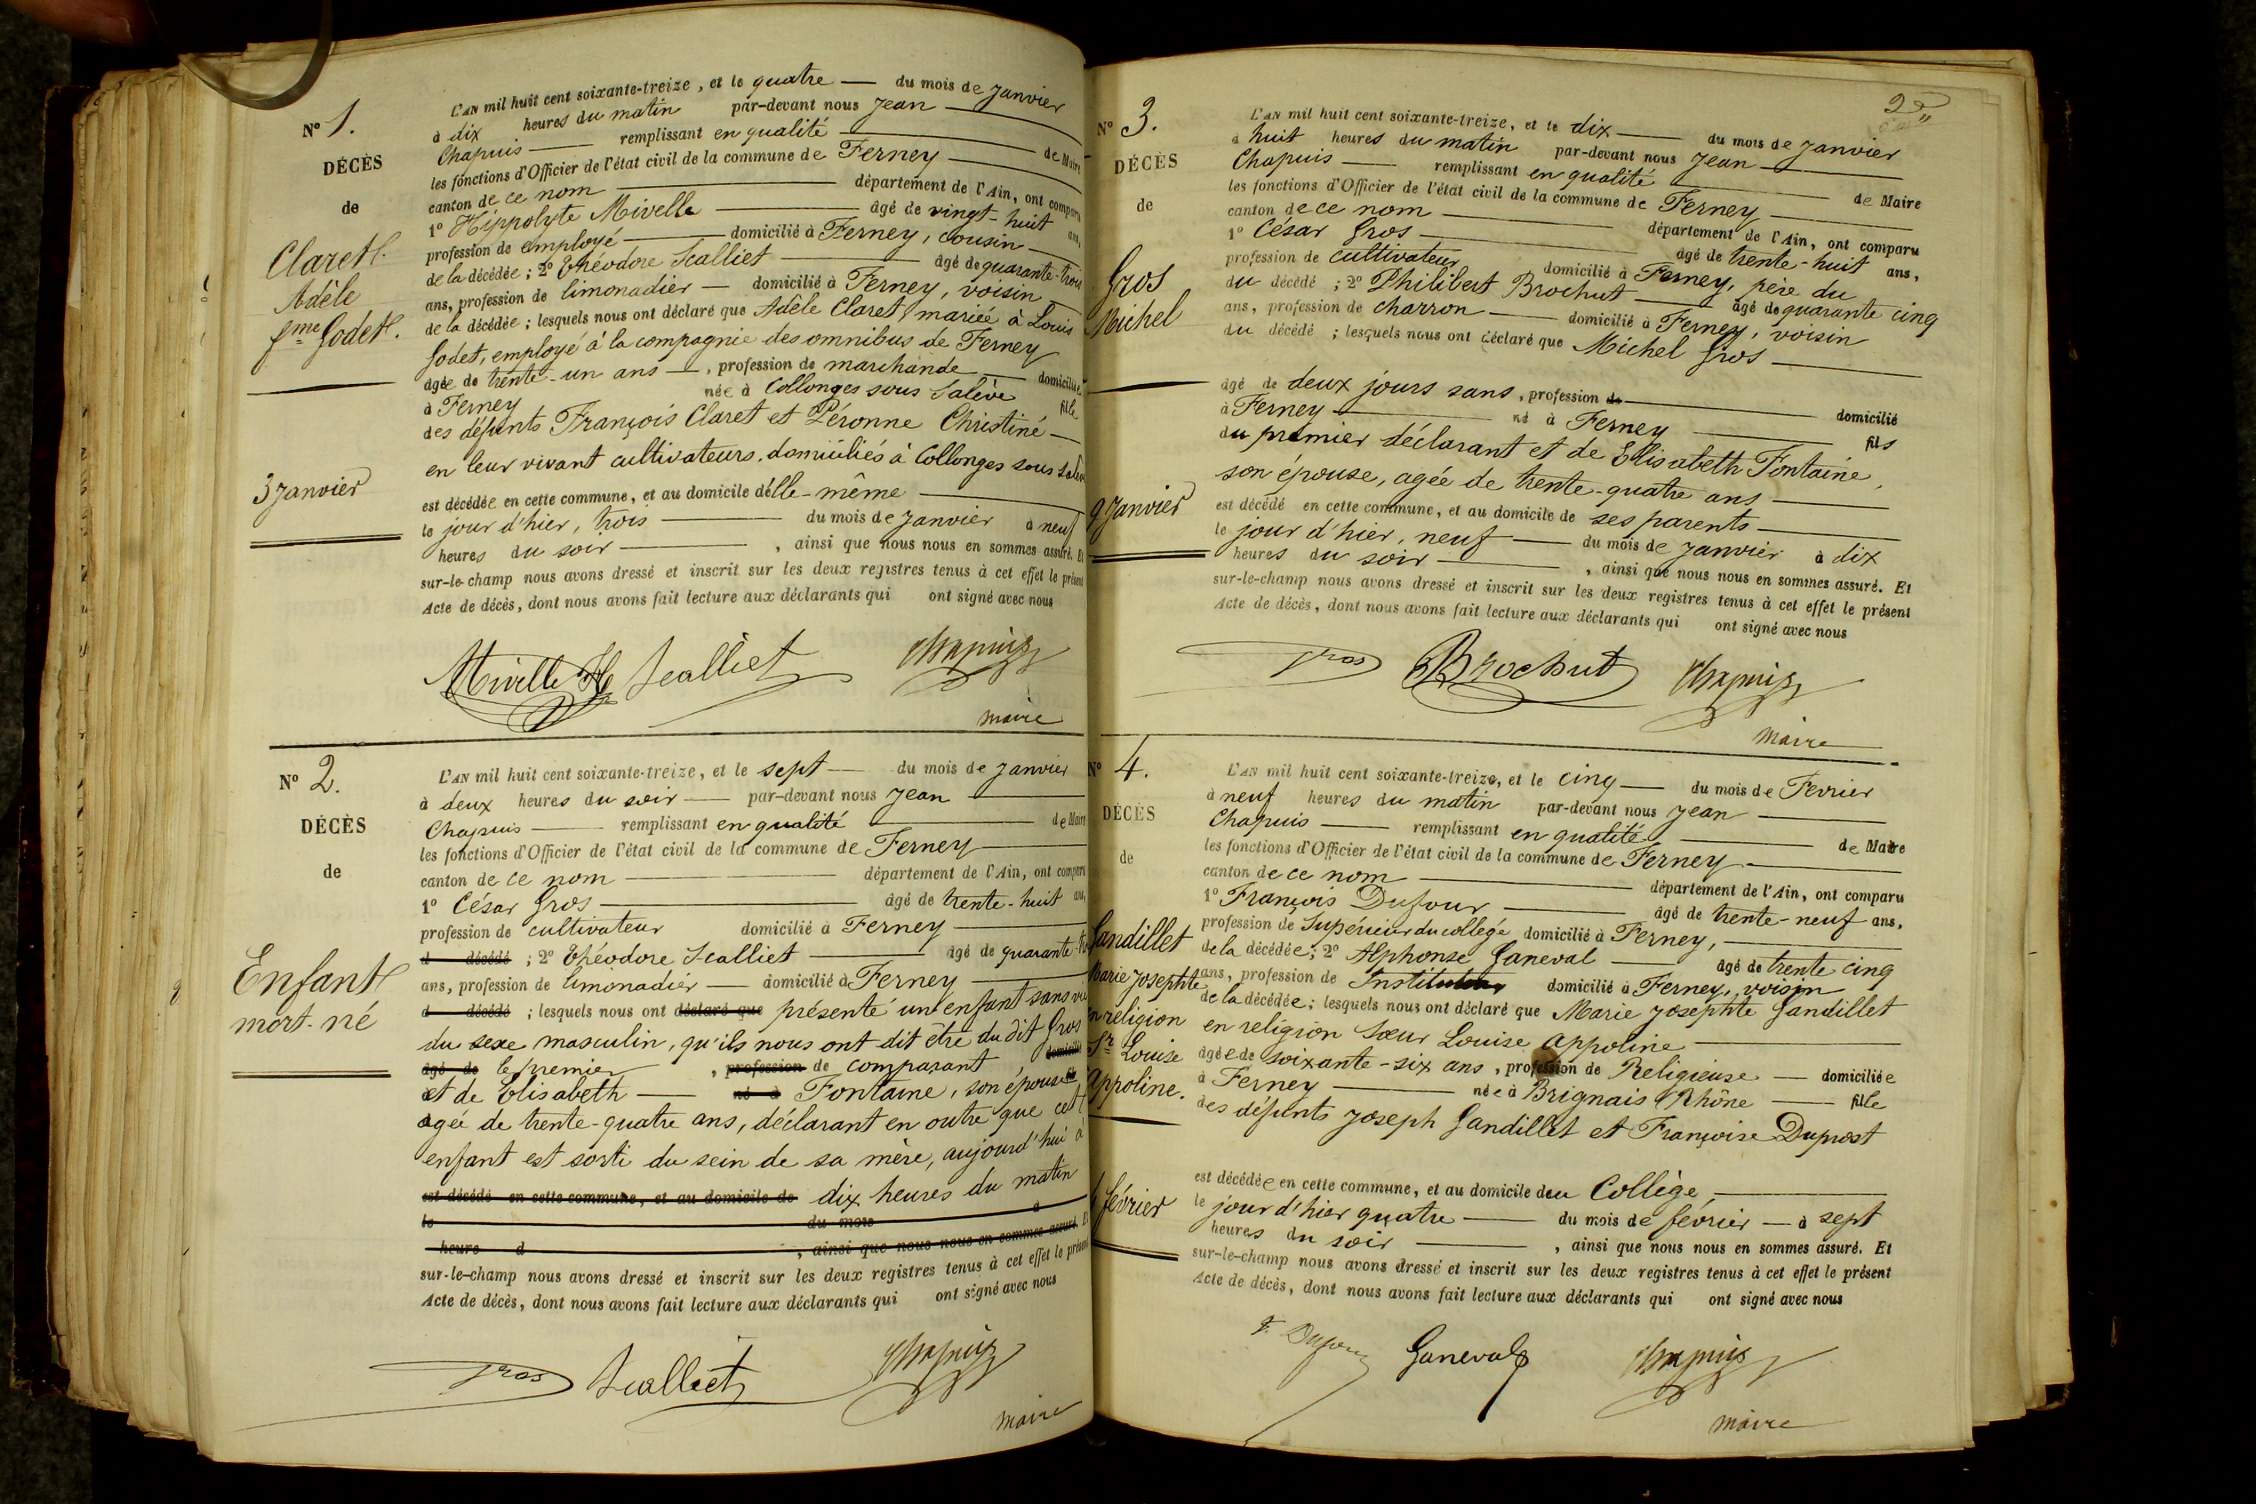 N° 1.
DÉCÈS
de
Claret
Adèle
fme Godet.
3 Janvier
L'AN mil huit cent soixante-treize, et le quatre — du mois de Janvier
à dix heures du matin par-devant nous Jean —
Chapuis — remplissant en qualité — de Maire
les fonctions d'Officier de l'état civil de la commune de Ferney —
canton de ce nom — département de l'Ain, ont comparu
1° Hippolyte Mivelle — âgé de vingt-huit ans,
profession de employé — domicilié à Ferney, cousin —
de la décédée ; 2° Théodore Scalliet — âgé de quarante-trois
ans, profession de limonadier — domicilié à Ferney, voisin
de la décédée ; lesquels nous ont déclaré que Adèle Claret, mariée à Louis
Godet, employé à la compagnie des omnibus de Ferney
âgée de trente-un ans —, profession de marchande — domiciliée
à Ferney née à Collonges sous Salève fille
des défunts François Claret et Péronne Christiné —
en leur vivant cultivateurs, domiciliés à Collonges sous Salève
est décédée en cette commune, et au domicile d'elle-même —
le jour d'hier, trois — du mois de Janvier à neuf
heures du soir —, ainsi que nous nous en sommes assuré. Et
sur-le-champ nous avons dressé et inscrit sur les deux registres tenus à cet effet le présent
Acte de décès, dont nous avons fait lecture aux déclarants qui ont signé avec nous
Mivelle H Scalliet Chapuis
maire
N° 2.
DÉCÈS
de
Enfant
mort-né
L'AN mil huit cent soixante-treize, et le sept — du mois de Janvier
à deux heures du soir — par-devant nous Jean —
Chapuis — remplissant en qualité — de Maire
les fonctions d'Officier de l'état civil de la commune de Ferney —
canton de ce nom — département de l'Ain, ont comparu
1° César Gros — âgé de trente-huit ans,
profession de cultivateur domicilié à Ferney —
d décédé ; 2° Théodore Scalliet — âgé de quarante-
ans, profession de limonadier — domicilié à Ferney —
d décédé ; lesquels nous ont déclaré que présenté un enfant sans vie
du sexe masculin, qu'ils nous ont dit être du dit Gros
âgé de le premier, profession de comparant domicilié
et de Elisabeth — né à Fontaine, son épouse
agée de trente-quatre ans, déclarant en outre que cet
enfant est sorti du sein de sa mère, aujourd'hui à
est décédé en cette commune, et au domicile de dix heures du matin
le du mois à
heure d , ainsi que nous nous en sommes assuré. Et
sur-le-champ nous avons dressé et inscrit sur les deux registres tenus à cet effet le présent
Acte de décès, dont nous avons fait lecture aux déclarants qui ont signé avec nous
Gros Scalliet Chapuis
maire
2e
N° 3.
DÉCÈS
de
Gros
Michel
9 Janvier
L'AN mil huit cent soixante-treize, et le dix — du mois de Janvier
à huit heures du matin par-devant nous Jean —
Chapuis — remplissant en qualité — de Maire
les fonctions d'Officier de l'état civil de la commune de Ferney —
canton de ce nom — département de l'Ain, ont comparu
1° César Gros — âgé de trente-huit ans,
profession de cultivateur domicilié à Ferney, père du
du décédé ; 2° Philibert Brochut — âgé de quarante cinq
ans, profession de charron — domicilié à Ferney, voisin
du décédé ; lesquels nous ont déclaré que Michel Gros —
âgé de deux jours sans, profession de — domicilié
à Ferney — né à Ferney — fils
du premier déclarant et de Elisabeth Fontaine,
son épouse, agée de trente-quatre ans —
est décédé en cette commune, et au domicile de ses parents —
le jour d'hier, neuf — du mois de Janvier à dix
heures du soir —, ainsi que nous nous en sommes assuré. Et
sur-le-champ nous avons dressé et inscrit sur les deux registres tenus à cet effet le présent
Acte de décès, dont nous avons fait lecture aux déclarants qui ont signé avec nous
Gros Brochut Chapuis
maire
N° 4.
DÉCÈS
de
Gandillet
Marie Josephte
en religion
Sr Louise
Appoline.
4 février
L'AN mil huit cent soixante-treize, et le cinq — du mois de Fevrier
à neuf heures du matin par-devant nous Jean —
Chapuis — remplissant en qualité — de Maire
les fonctions d'Officier de l'état civil de la commune de Ferney —
canton de ce nom — département de l'Ain, ont comparu
1° François Dufour — âgé de trente-neuf ans,
profession de Supérieur du collége domicilié à Ferney, —
de la décédée ; 2° Alphonse Ganeval — âgé de trente cinq
ans, profession de Instituteur domicilié à Ferney, voisin
de la décédée ; lesquels nous ont déclaré que Marie Josephte Gandillet
en religion Sœur Louise Appoline —
âgée de soixante-six ans, profession de Religieuse — domiciliée
à Ferney — née à Brignais (Rhône — fille
des défunts Joseph Gandillet et Françoise Duprost
est décédée en cette commune, et au domicile du Collège, —
le jour d'hier quatre — du mois de février — à sept
heures du soir —, ainsi que nous nous en sommes assuré. Et
sur-le-champ nous avons dressé et inscrit sur les deux registres tenus à cet effet le présent
Acte de décès, dont nous avons fait lecture aux déclarants qui ont signé avec nous
F. Dufour Ganeval Chapuis
maire